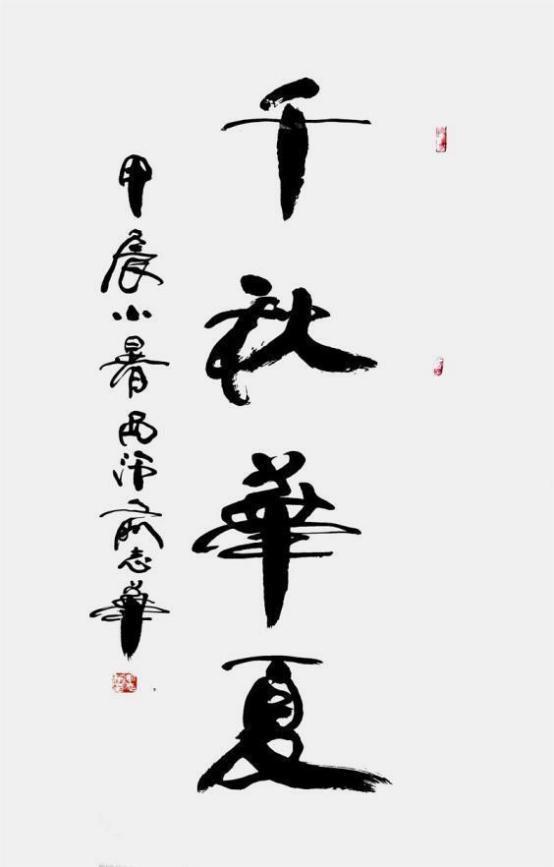 千秋華夏
甲辰小暑西泠俞志華